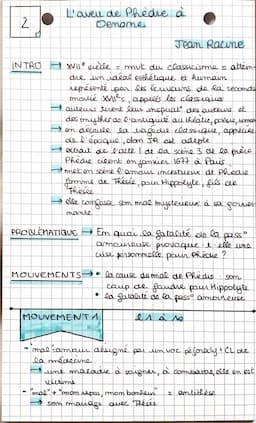 2
L'aveu de Phèdre à
Oenone
Jean Racine
INTRO → XVIIe siècle = mvt du classicisme = attein-
dre un idéal esthétique et humain
représenté par les écrivains de la seconde
moitié XVIIe s, appelés les classiques
→ auteurs tirent leur inspirat° des auteurs et
des mythes de l'antiquité au théâtre, poésie, roman
→ en découle la tragédie classique, appréciée
de l'époque, dont JR est adepte
→ extrait de l'acte 1 de la scène 3 de la pièce
Phèdre écrit en janvier 1677 à Paris
→ met en scène l'amour incestueux de Phèdre
femme de Thésée, pour Hippolyte, fils de
Thésée
→ elle confesse son mal mystérieux à sa gouver-
nante
PROBLÉMATIQUE → En quoi la fatalité de la pass°
amoureuse provoque-t-elle une
crise personnelle pour Phèdre ?
MOUVEMENTS → • la cause du mal de Phèdre : son
coup de foudre pour Hippolyte
• la fatalité de la pass° amoureuse
MOUVEMENT 1 l 1 à 10
- "mal" amour désigné par un voc péjoratif + CL de
la médecine
→ une maladie à soigner, à combattre, elle en est
victime
- "mal" + "mon repos, mon bonheur" = antithèse
→ son mariage avec Thésée